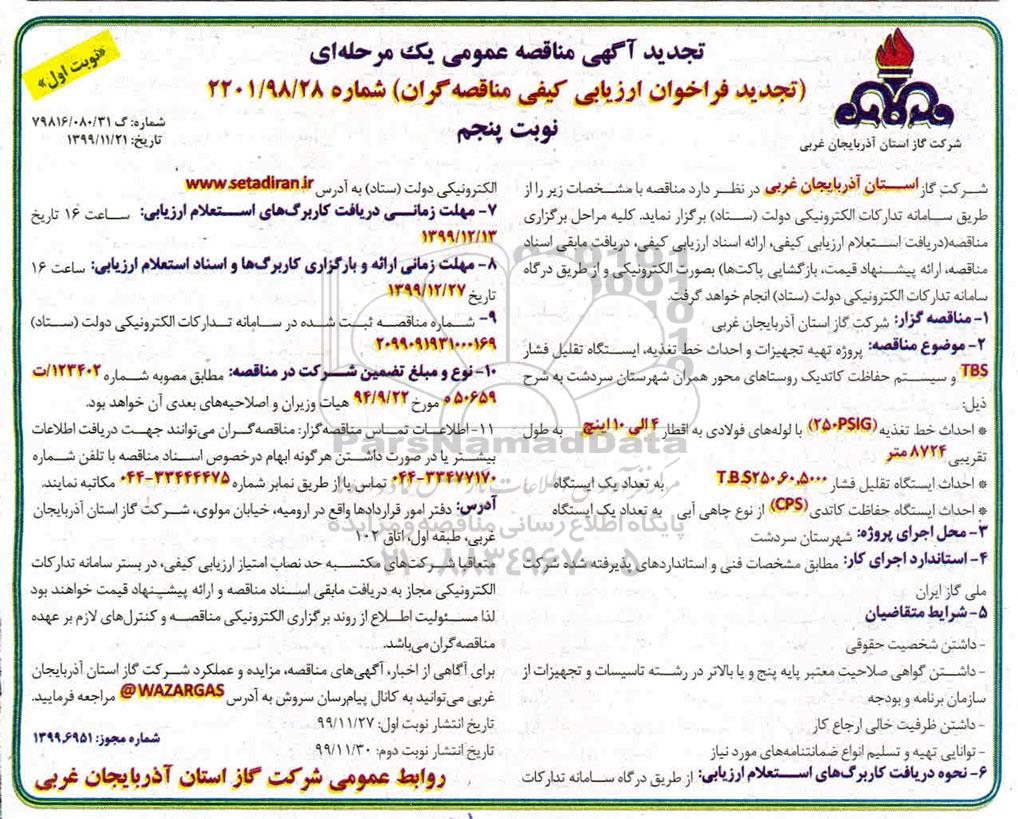 تجدید آگهی مناقصه عمومی یک مرحله‌ای
(تجدید فراخوان ارزیابی کیفی مناقصه‌گران) شماره ۲۲۰۱/۹۸/۲۸
نوبت پنجم
«نوبت اول»
شماره: گ ۷۹۸۱۶/۰۸۰/۳۱
تاریخ: ۱۳۹۹/۱۱/۲۱
شرکت گاز استان آذربایجان غربی
شرکت گاز استان آذربایجان غربی در نظر دارد مناقصه با مشخصات زیر را از
طریق سامانه تدارکات الکترونیکی دولت (ستاد) برگزار نماید. کلیه مراحل برگزاری
مناقصه(دریافت استعلام ارزیابی کیفی، ارائه اسناد ارزیابی کیفی، دریافت مابقی اسناد
مناقصه، ارائه پیشنهاد قیمت، بازگشایی پاکت‌ها) بصورت الکترونیکی و از طریق درگاه
سامانه تدارکات الکترونیکی دولت (ستاد) انجام خواهد گرفت.
۱- مناقصه گزار: شرکت گاز استان آذربایجان غربی
۲- موضوع مناقصه: پروژه تهیه تجهیزات و احداث خط تغذیه، ایستگاه تقلیل فشار
TBS و سیستم حفاظت کاتدیک روستاهای محور همران شهرستان سردشت به شرح
ذیل:
* احداث خط تغذیه (۲۵۰PSIG) با لوله‌های فولادی به اقطار ۴ الی ۱۰ اینچ به طول
تقریبی ۸۷۲۴ متر
* احداث ایستگاه تقلیل فشار T.B.S۲۵۰.۶۰.۵۰۰۰ به تعداد یک ایستگاه
* احداث ایستگاه حفاظت کاتدی (CPS) از نوع چاهی آبی به تعداد یک ایستگاه
۳- محل اجرای پروژه: شهرستان سردشت
۴- استاندارد اجرای کار: مطابق مشخصات فنی و استانداردهای پذیرفته شده شرکت
ملی گاز ایران
۵- شرایط متقاضیان
- داشتن شخصیت حقوقی
- داشتن گواهی صلاحیت معتبر پایه پنج و یا بالاتر در رشته تاسیسات و تجهیزات از
سازمان برنامه و بودجه
- داشتن ظرفیت خالی ارجاع کار
- توانایی تهیه و تسلیم انواع ضمانتنامه‌های مورد نیاز
۶- نحوه دریافت کاربرگ‌های استعلام ارزیابی: از طریق درگاه سامانه تدارکات
الکترونیکی دولت (ستاد) به آدرس www.setadiran.ir
۷- مهلت زمانی دریافت کاربرگ‌های استعلام ارزیابی: ساعت ۱۶ تاریخ
۱۳۹۹/۱۲/۱۳
۸- مهلت زمانی ارائه و بارگزاری کاربرگ‌ها و اسناد استعلام ارزیابی: ساعت ۱۶
تاریخ ۱۳۹۹/۱۲/۲۷
۹- شماره مناقصه ثبت شده در سامانه تدارکات الکترونیکی دولت (ستاد)
۲۰۹۹۰۹۱۹۳۱۰۰۰۱۶۹
۱۰- نوع و مبلغ تضمین شرکت در مناقصه: مطابق مصوبه شماره ۱۲۳۴۰۲/ت
۵۰۶۵۹ ه مورخ ۹۴/۹/۲۲ هیات وزیران و اصلاحیه‌های بعدی آن خواهد بود.
۱۱- اطلاعات تماس مناقصه‌گزار: مناقصه‌گران می‌توانند جهت دریافت اطلاعات
بیشتر یا در صورت داشتن هرگونه ابهام درخصوص اسناد مناقصه با تلفن شماره
۰۴۴-۳۳۴۷۷۱۷۰ تماس یا از طریق نمابر شماره ۰۴۴-۳۳۴۴۴۴۷۵ مکاتبه نمایند.
آدرس: دفتر امور قراردادها واقع در ارومیه، خیابان مولوی، شرکت گاز استان آذربایجان
غربی، طبقه اول، اتاق ۱۰۲
متعاقبا شرکت‌های مکتسبه حد نصاب امتیاز ارزیابی کیفی، در بستر سامانه تدارکات
الکترونیکی مجاز به دریافت مابقی اسناد مناقصه و ارائه پیشنهاد قیمت خواهند بود
لذا مسئولیت اطلاع از روند برگزاری الکترونیکی مناقصه و کنترل‌های لازم بر عهده
مناقصه‌گران می‌باشد.
برای آگاهی از اخبار، آگهی‌های مناقصه، مزایده و عملکرد شرکت گاز استان آذربایجان
غربی می‌توانید به کانال پیام‌رسان سروش به آدرس @WAZARGAS مراجعه فرمایید.
تاریخ انتشار نوبت اول: ۹۹/۱۱/۲۷
تاریخ انتشار نوبت دوم: ۹۹/۱۱/۳۰
شماره مجوز: ۱۳۹۹.۶۹۵۱
روابط عمومی شرکت گاز استان آذربایجان غربی
ParsNamadData
پایگاه اطلاع رسانی مناقصه و مزایده
۰۲۱-۸۸۳۴۹۶۷۰-۵